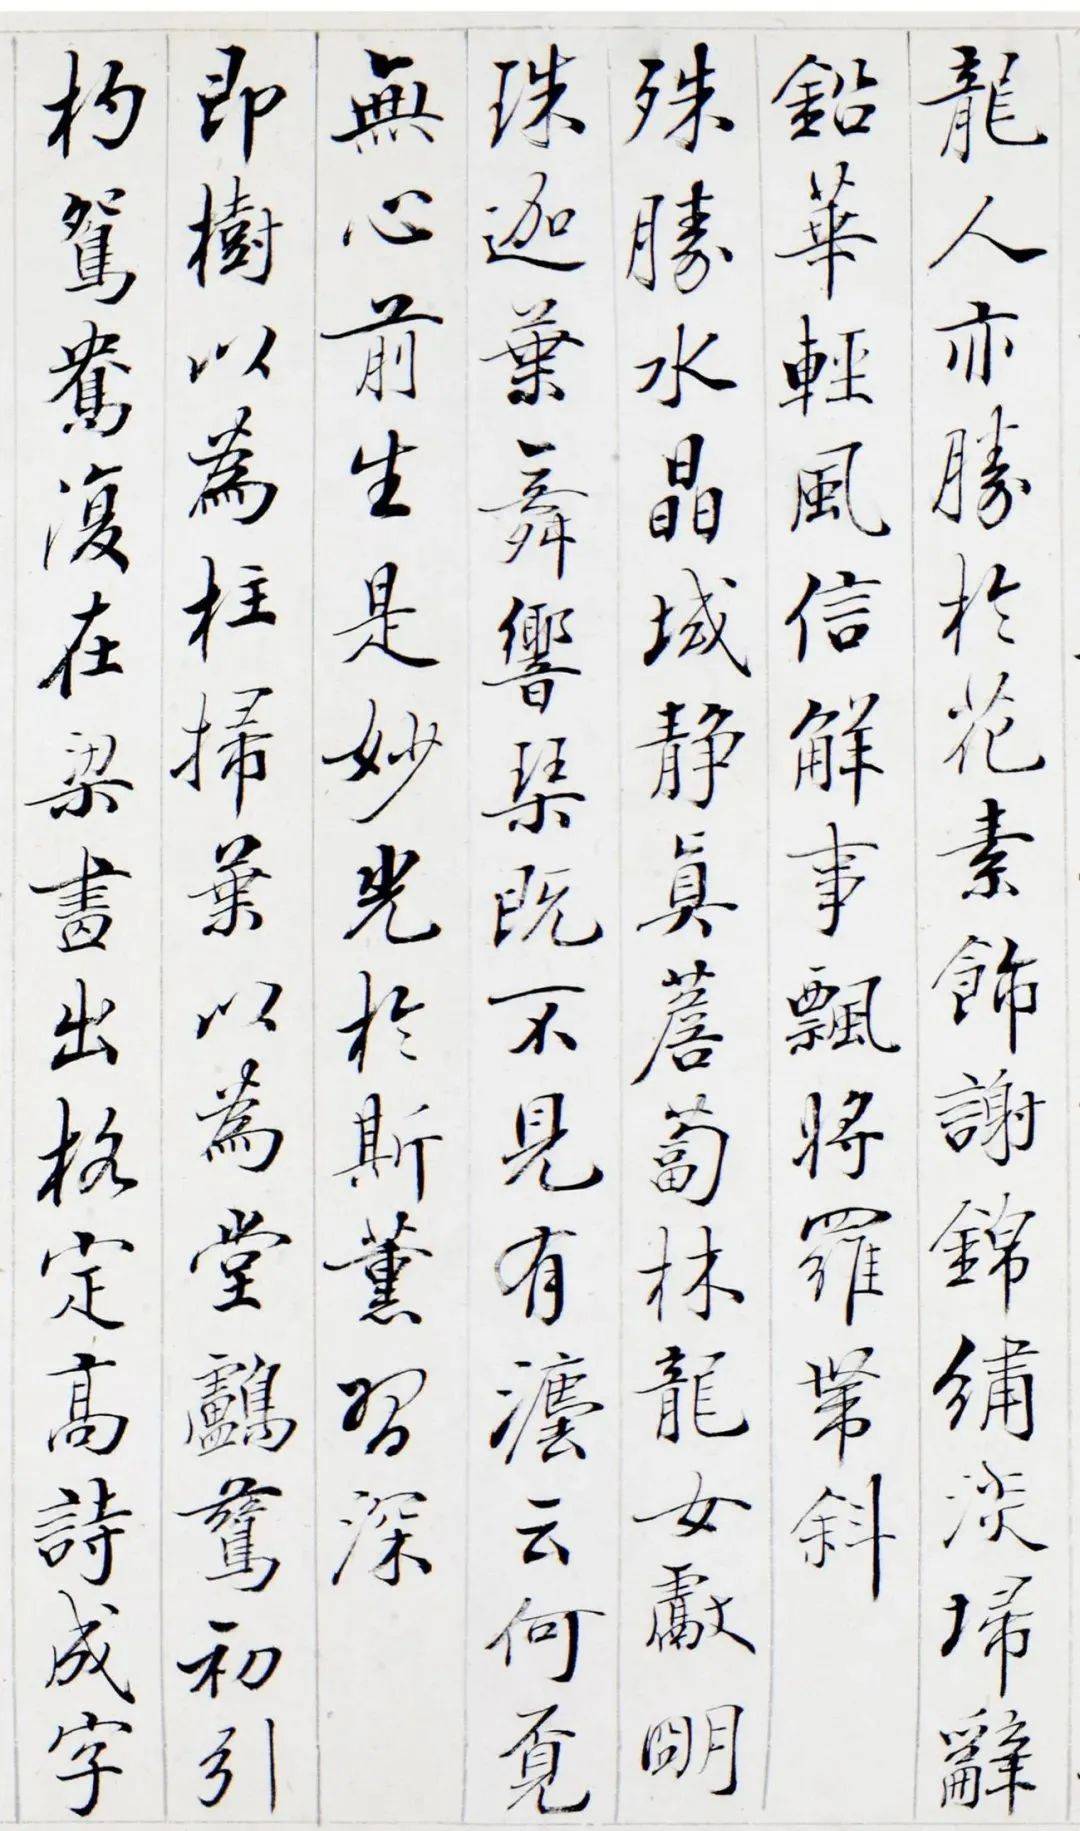 龍人亦勝於花素飾謝錦繡淡掃辭
鉛華輕風信解事飄將羅帶斜
殊勝水晶域靜真薝蔔林龍女獻明
珠迦葉舞響琴既不見有灋云何覓
無心前生是妙光於斯薰習深
即樹以為柱掃葉以為堂鸕鶿初引
杓鴛鴦復在梁畫出格定高詩成字